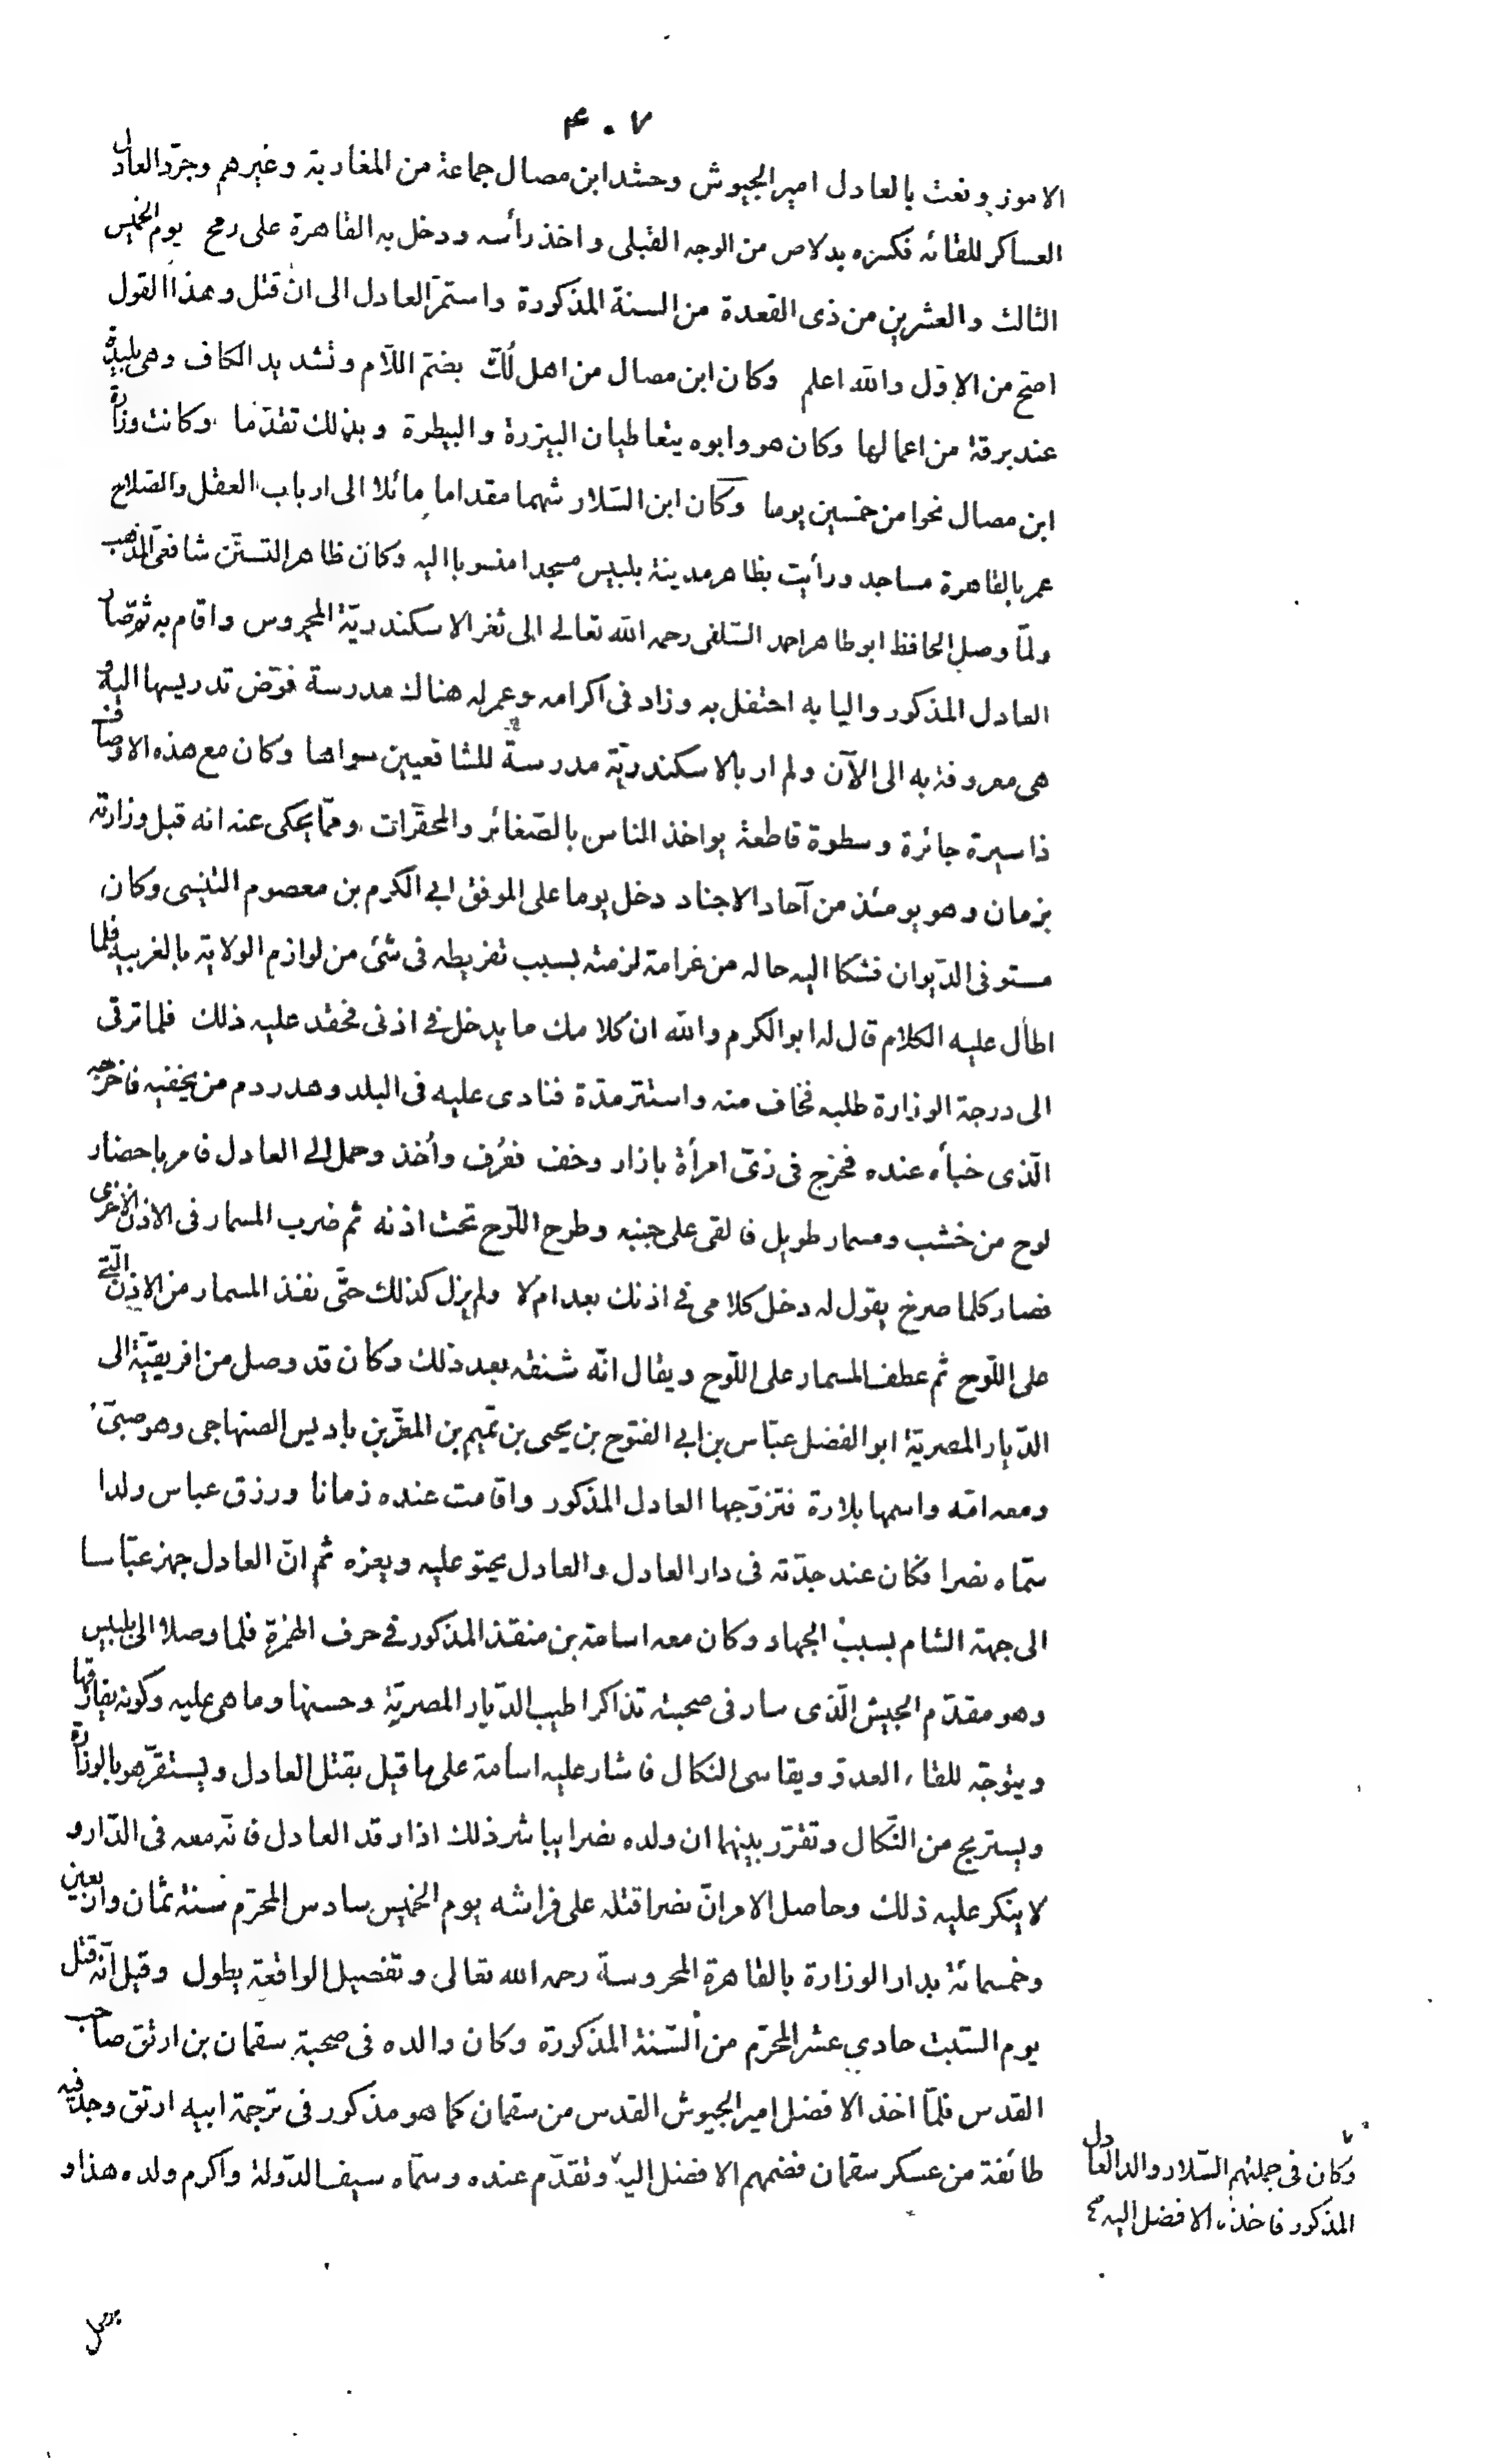 ۴۰۷
الامور ونعت بالعادل امير الجيوش وحشد ابن مصال جماعة من المغاربة وغيرهم وجرّد العادل
العساكر للقائه فكسره بدلاص من الوجه القبلى واخذ رأسه ودخل به القاهرة على رمح يوم الخميس
الثالث والعشرين من ذى القعدة من السنة المذكورة واستمرّ العادل الى ان قتل وهذا القول
اصحّ من الاوّل والله اعلم وكان ابن مصال من اهل لُكّ بضمّ اللام وتشديد الكاف وهى بليدة
عند برقة من اعمالها وكان هو وابوه يتعاطيان البيزرة والبيطرة وبذلك تقدّما وكانت وزارة
ابن مصال نحوا من خمسين يوما وكان ابن السّلار شهما مقداما مائلا الى ارباب العقل والصّلاح
عمر بالقاهرة مساجد ورأيت بظاهر مدينة بلبيس مسجدا منسوبا اليه وكان ظاهر التسنّن شافعىّ المذهب
ولمّا وصل الحافظ ابو طاهر احمد السّلفى رحمه الله تعالى الى ثغر الاسكندريّة المحروس واقام به ثم صار
العادل المذكور واليا به احتفل به وزاد فى اكرامه وعمر له هناك مدرسة فوّض تدريسها اليه و
هى معروفة به الى الآن ولم ار بالاسكندريّة مدرسة للشافعيين سواها وكان مع هذه الاوصاف
ذا سيرة جائرة وسطوة قاطعة يواخذ الناس بالصّغائر والمحقّرات وممّا يحكى عنه انه قبل وزارته
بزمان وهو يومئذ من آحاد الاجناد دخل يوما على الموفق ابى الكرم بن معصوم التنيسى وكان
مستوفى الدّيوان فشكا اليه حاله من غرامة لزمته بسبب تفريطه فى شئ من لوازم الولاية بالغربية فلما
اطال عليه الكلام قال له ابو الكرم والله ان كلامك ما يدخل فى اذنى فحقد عليه ذلك فلما ترقى
الى درجة الوزارة طلبه فخاف منه واستتر مدّة فنادى عليه فى البلد وهدر دم من يخفيه فاخرجه
الّذى خبأه عنده فخرج فى زىّ امرأة بازار وخف فعُرف وأُخذ وحمل الى العادل فامر باحضار
لوح من خشب ومسمار طويل فالقى على جنبه وطرح اللّوح تحت اذنه ثم ضرب المسمار فى الاذن الاخرى
فصار كلما صرخ يقول له دخل كلامى فى اذنك بعد ام لا ولم يزل كذلك حتّى نفذ المسمار من الاذن الّتى
على اللّوح ثم عطف المسمار على اللّوح ويقال انّه شنقه بعد ذلك وكان قد وصل من افريقيّة الى
الدّيار المصريّة ابو الفضل عبّاس بن ابى الفتوح بن يحيى بن تميم بن المعزّ بن باديس الصنهاجى وهو صبىّ
ومعه امّه واسمها بلارة فتزوّجها العادل المذكور واقامت عنده زمانا ورزق عباس ولدا
سمّاه نصرا فكان عند جدّته فى دار العادل والعادل يحنو عليه ويعزه ثم انّ العادل جهز عبّاسا
الى جهة الشام بسبب الجهاد وكان معه اسامة بن منقذ المذكور فى حرف الهمزة فلما وصلا الى بلبيس
وهو مقدّم الجيش الّذى سار فى صحبته تذاكرا طيب الدّيار المصريّة وحسنها وما هى عليه وكونه يفارقها
ويتوجّه للقاء العدوّ ويقاسى النكال فاشار عليه اسامة على ما قيل بقتل العادل ويستقرّ هو بالوزارة
ويستريح من النّكال وتقرّر بينهما ان ولده نصرا يباشر ذلك اذا رقد العادل فانّه معه فى الدّار و
لا ينكر عليه ذلك وحاصل الامر انّ نصرا قتله على فراشه يوم الخميس سادس المحرّم سنة ثمان واربعين
وخمسمائة بدار الوزارة بالقاهرة المحروسة رحمه الله تعالى وتفصيل الواقعة يطول وقيل انّه قتل
يوم السّبت حادى عشر المحرّم من السّنة المذكورة وكان والده فى صحبة سقمان بن ارتق صاحب
القدس فلمّا اخذ الافضل امير الجيوش القدس من سقمان كما هو مذكور فى ترجمة ابيه ارتق وجد فيه
طائفة من عسكر سقمان فضمهم الافضل اليه وتقدّم عنده وسمّاه سيف الدّولة واكرم ولده هذا و
وكان فى جملتهم السّلار والد العادل
المذكور فاخذه الافضل اليه